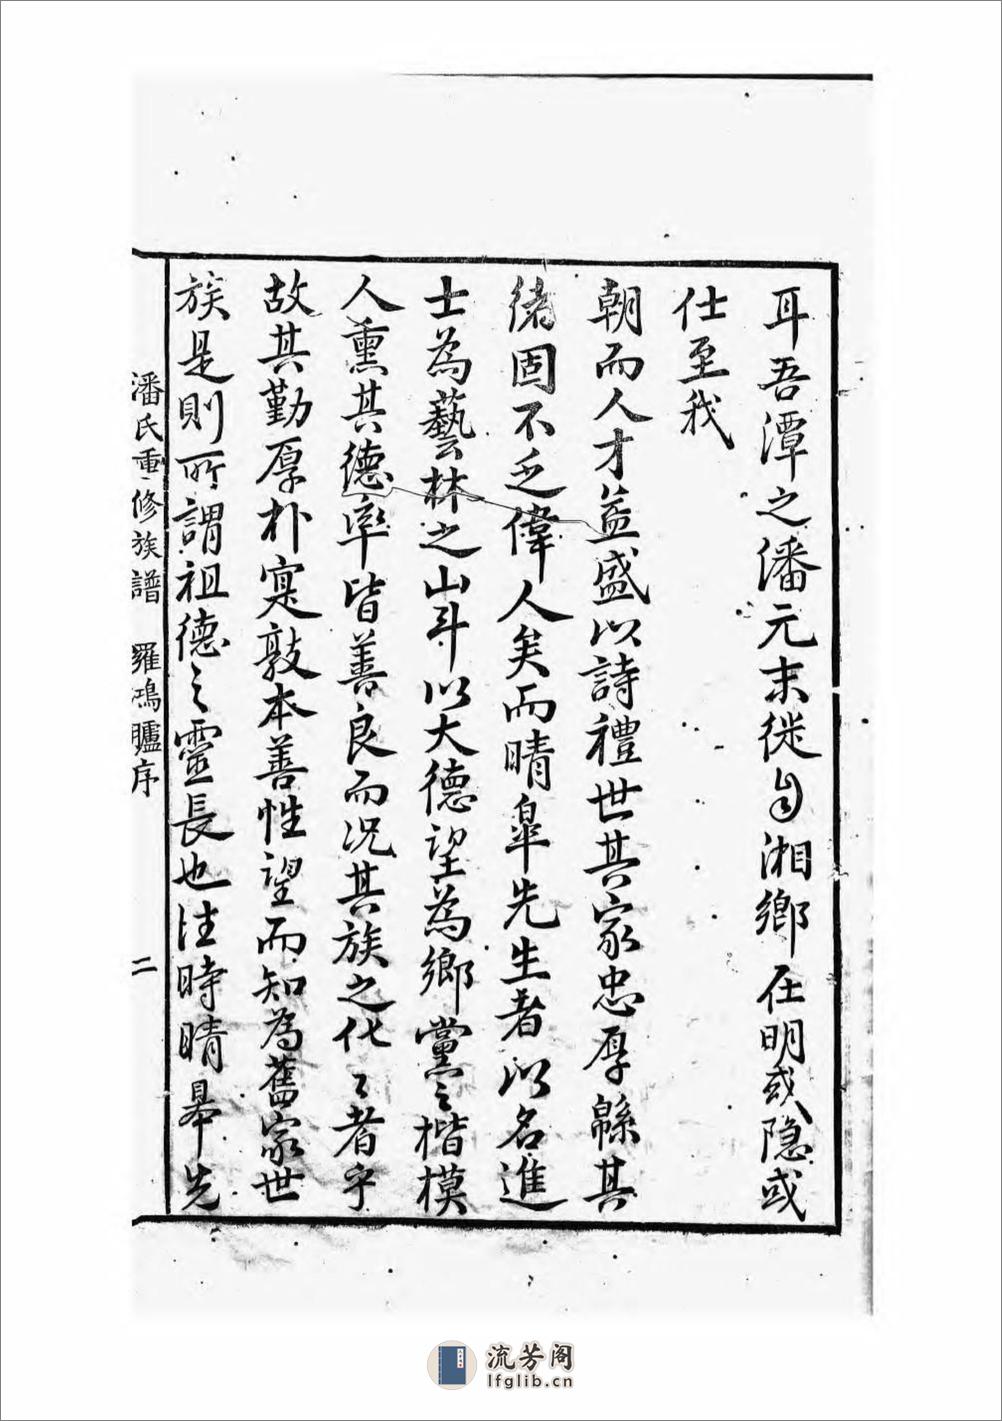 耳吾潭之潘元末徙自湘鄉在明或隐或
仕至我
朝而人才益盛以詩禮世其家忠厚緜其
緒固不乏偉人矣而晴臯先生者以名進
士為藝林之山斗以大德望為鄉黨之楷模
人熏其德率皆善良而况其族之化之者乎
故其勤厚朴寔敦本善性望而知為舊家世
族是則所謂祖德之靈長也往時晴皋先
潘氏重修族譜 羅鴻臚序 二
流芳阁
lfglib.cn